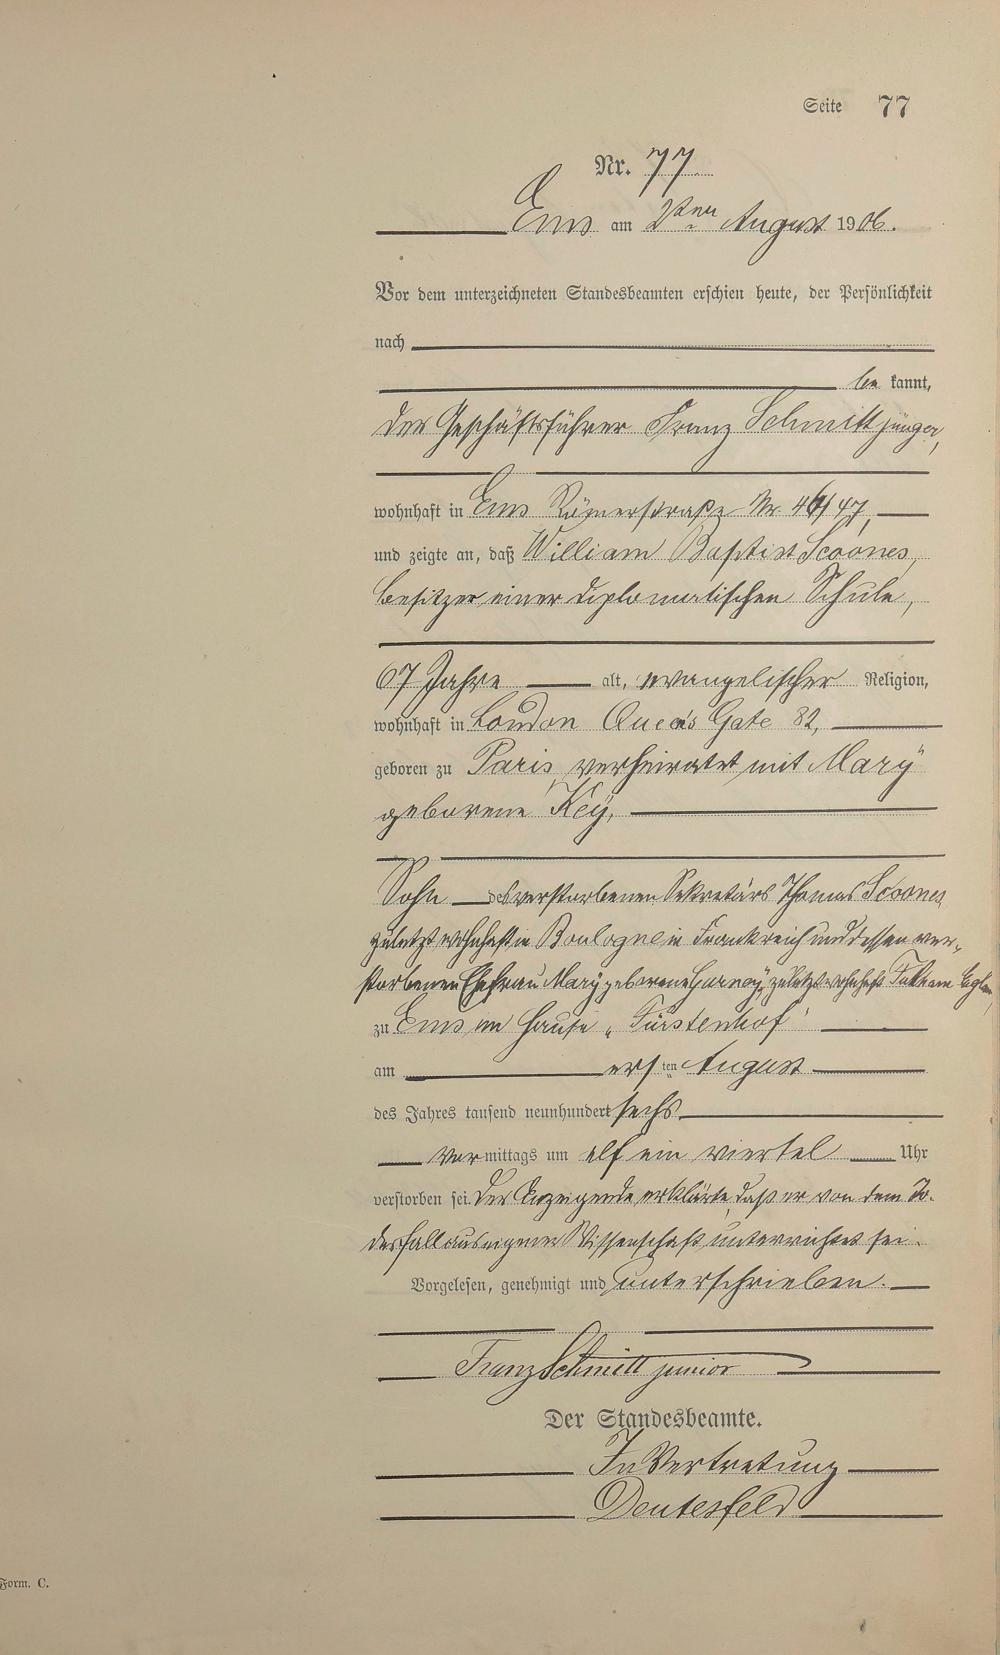 Seite 77
Nr. 77.
Ems am 2ten August 1906.
Vor dem unterzeichneten Standesbeamten erschien heute, der Persönlichkeit
nach
be kannt,
der Geschäftsführer Franz Schmitt junger,
wohnhaft in Ems Römerstraße Nr 46/47,
und zeigte an, daß William Baptist Scoones,
Besitzer einer diplomatischen Schule,
67 Jahre alt, evangelischer Religion,
wohnhaft in London Queens Gate 82,
geboren zu Paris, verheiratet mit Mary
geborene Key,
Sohn des verstorbenen Sekretärs Thomas Scoones
zuletzt wohnhaft in Boulogne in Frankreich und dessen ver-
storbenen Ehefrau Mary geborene zuletzt wohnhaft
zu Ems im Hause „Fürstenhof"
am ersten August
des Jahres tausend neunhundert sechs
Vor mittags um elf ein viertel Uhr
verstorben sei. Der Anzeigende erklärte, daß er von dem To-
desfall aus eigener Wissenschaft unterrichtet sei.
Vorgelesen, genehmigt und unterschrieben.
Franz Schmitt junior
Der Standesbeamte.
In Vertretung
Deutesfeld
Form. C.